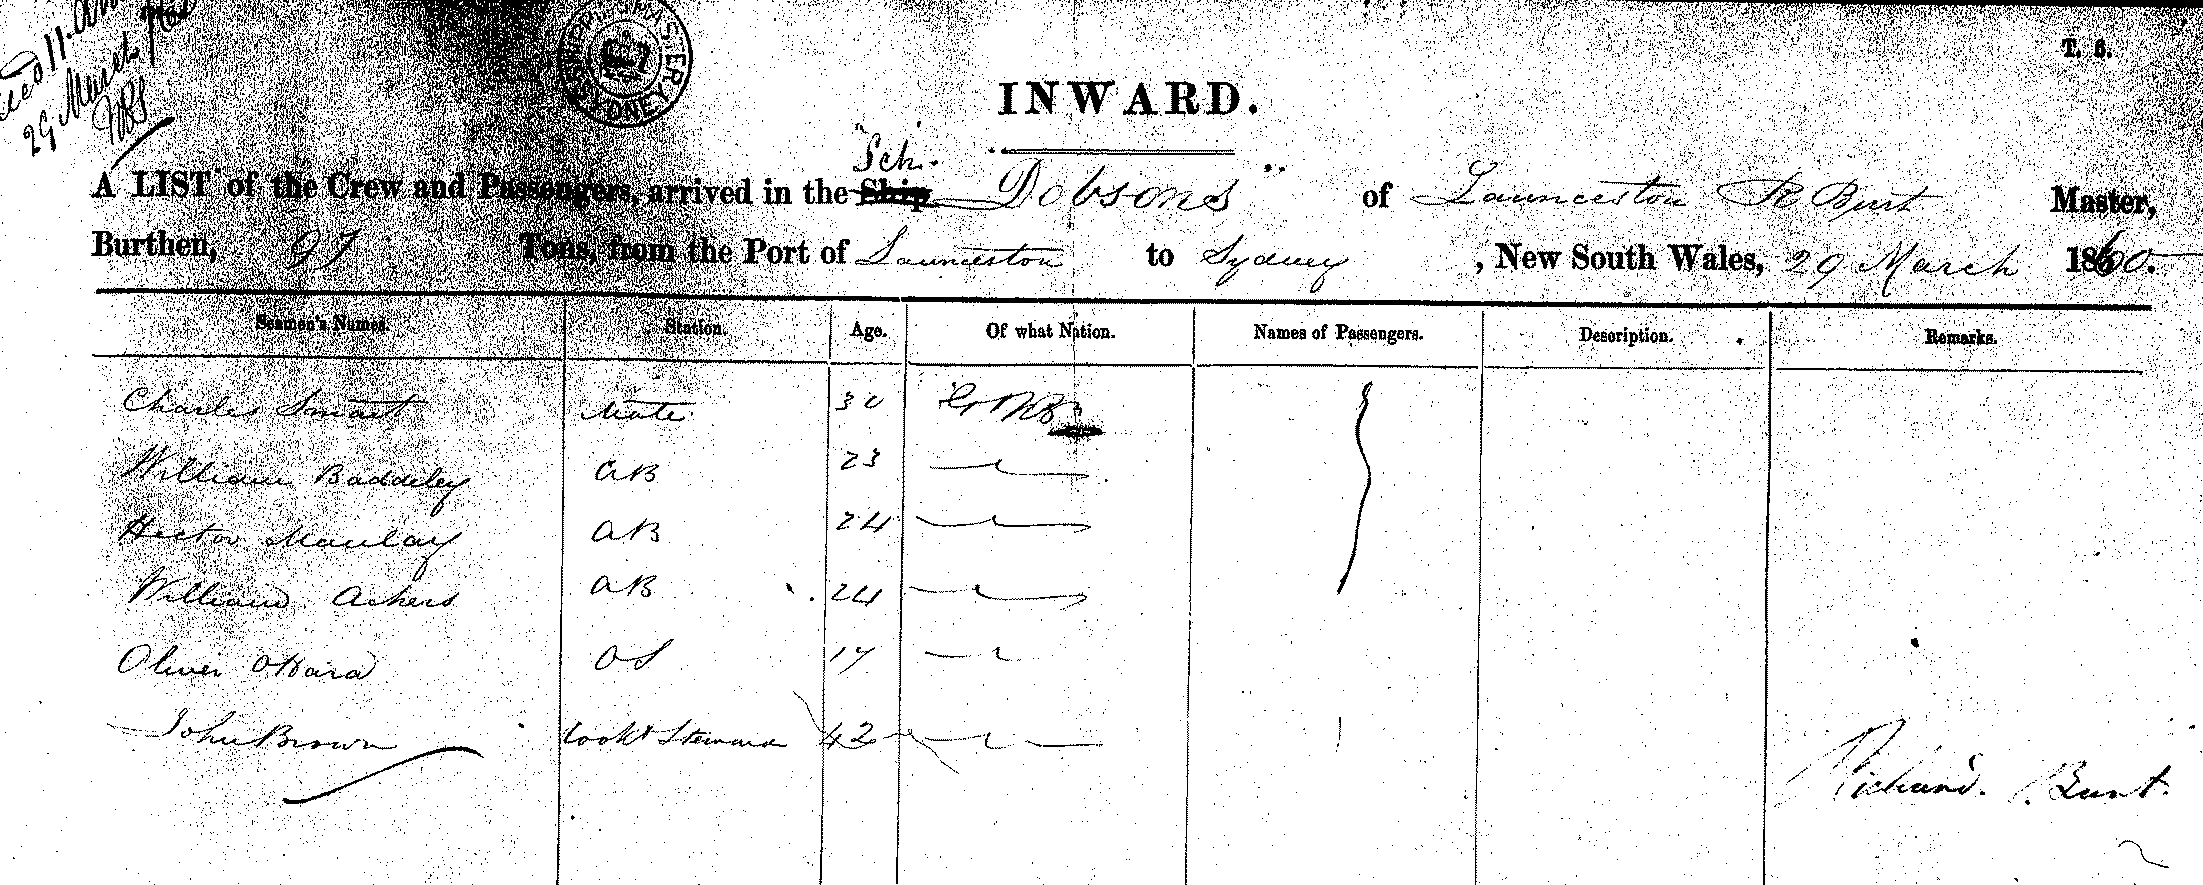 11. am
29 March 1860
SHIPPING MASTER SYDNEY
T. 6.
INWARD.
Sch.
A LIST of the Crew and Passengers, arrived in the Ship "Dobsons" of Launceston R Burt Master,
Burthen, 97 Tons, from the Port of Launceston to Sydney, New South Wales, 29 March 1860.
Seamen's Names. Station. Age. Of what Nation. Names of Passengers. Description. Remarks.
Charles Smart Mate 30
William Baddeley AB 23
Hector Maculay AB 24
William Ackers AB 24
Oliver OHara OS 17
John Brown Cook & Steward 42
Richard Burt.